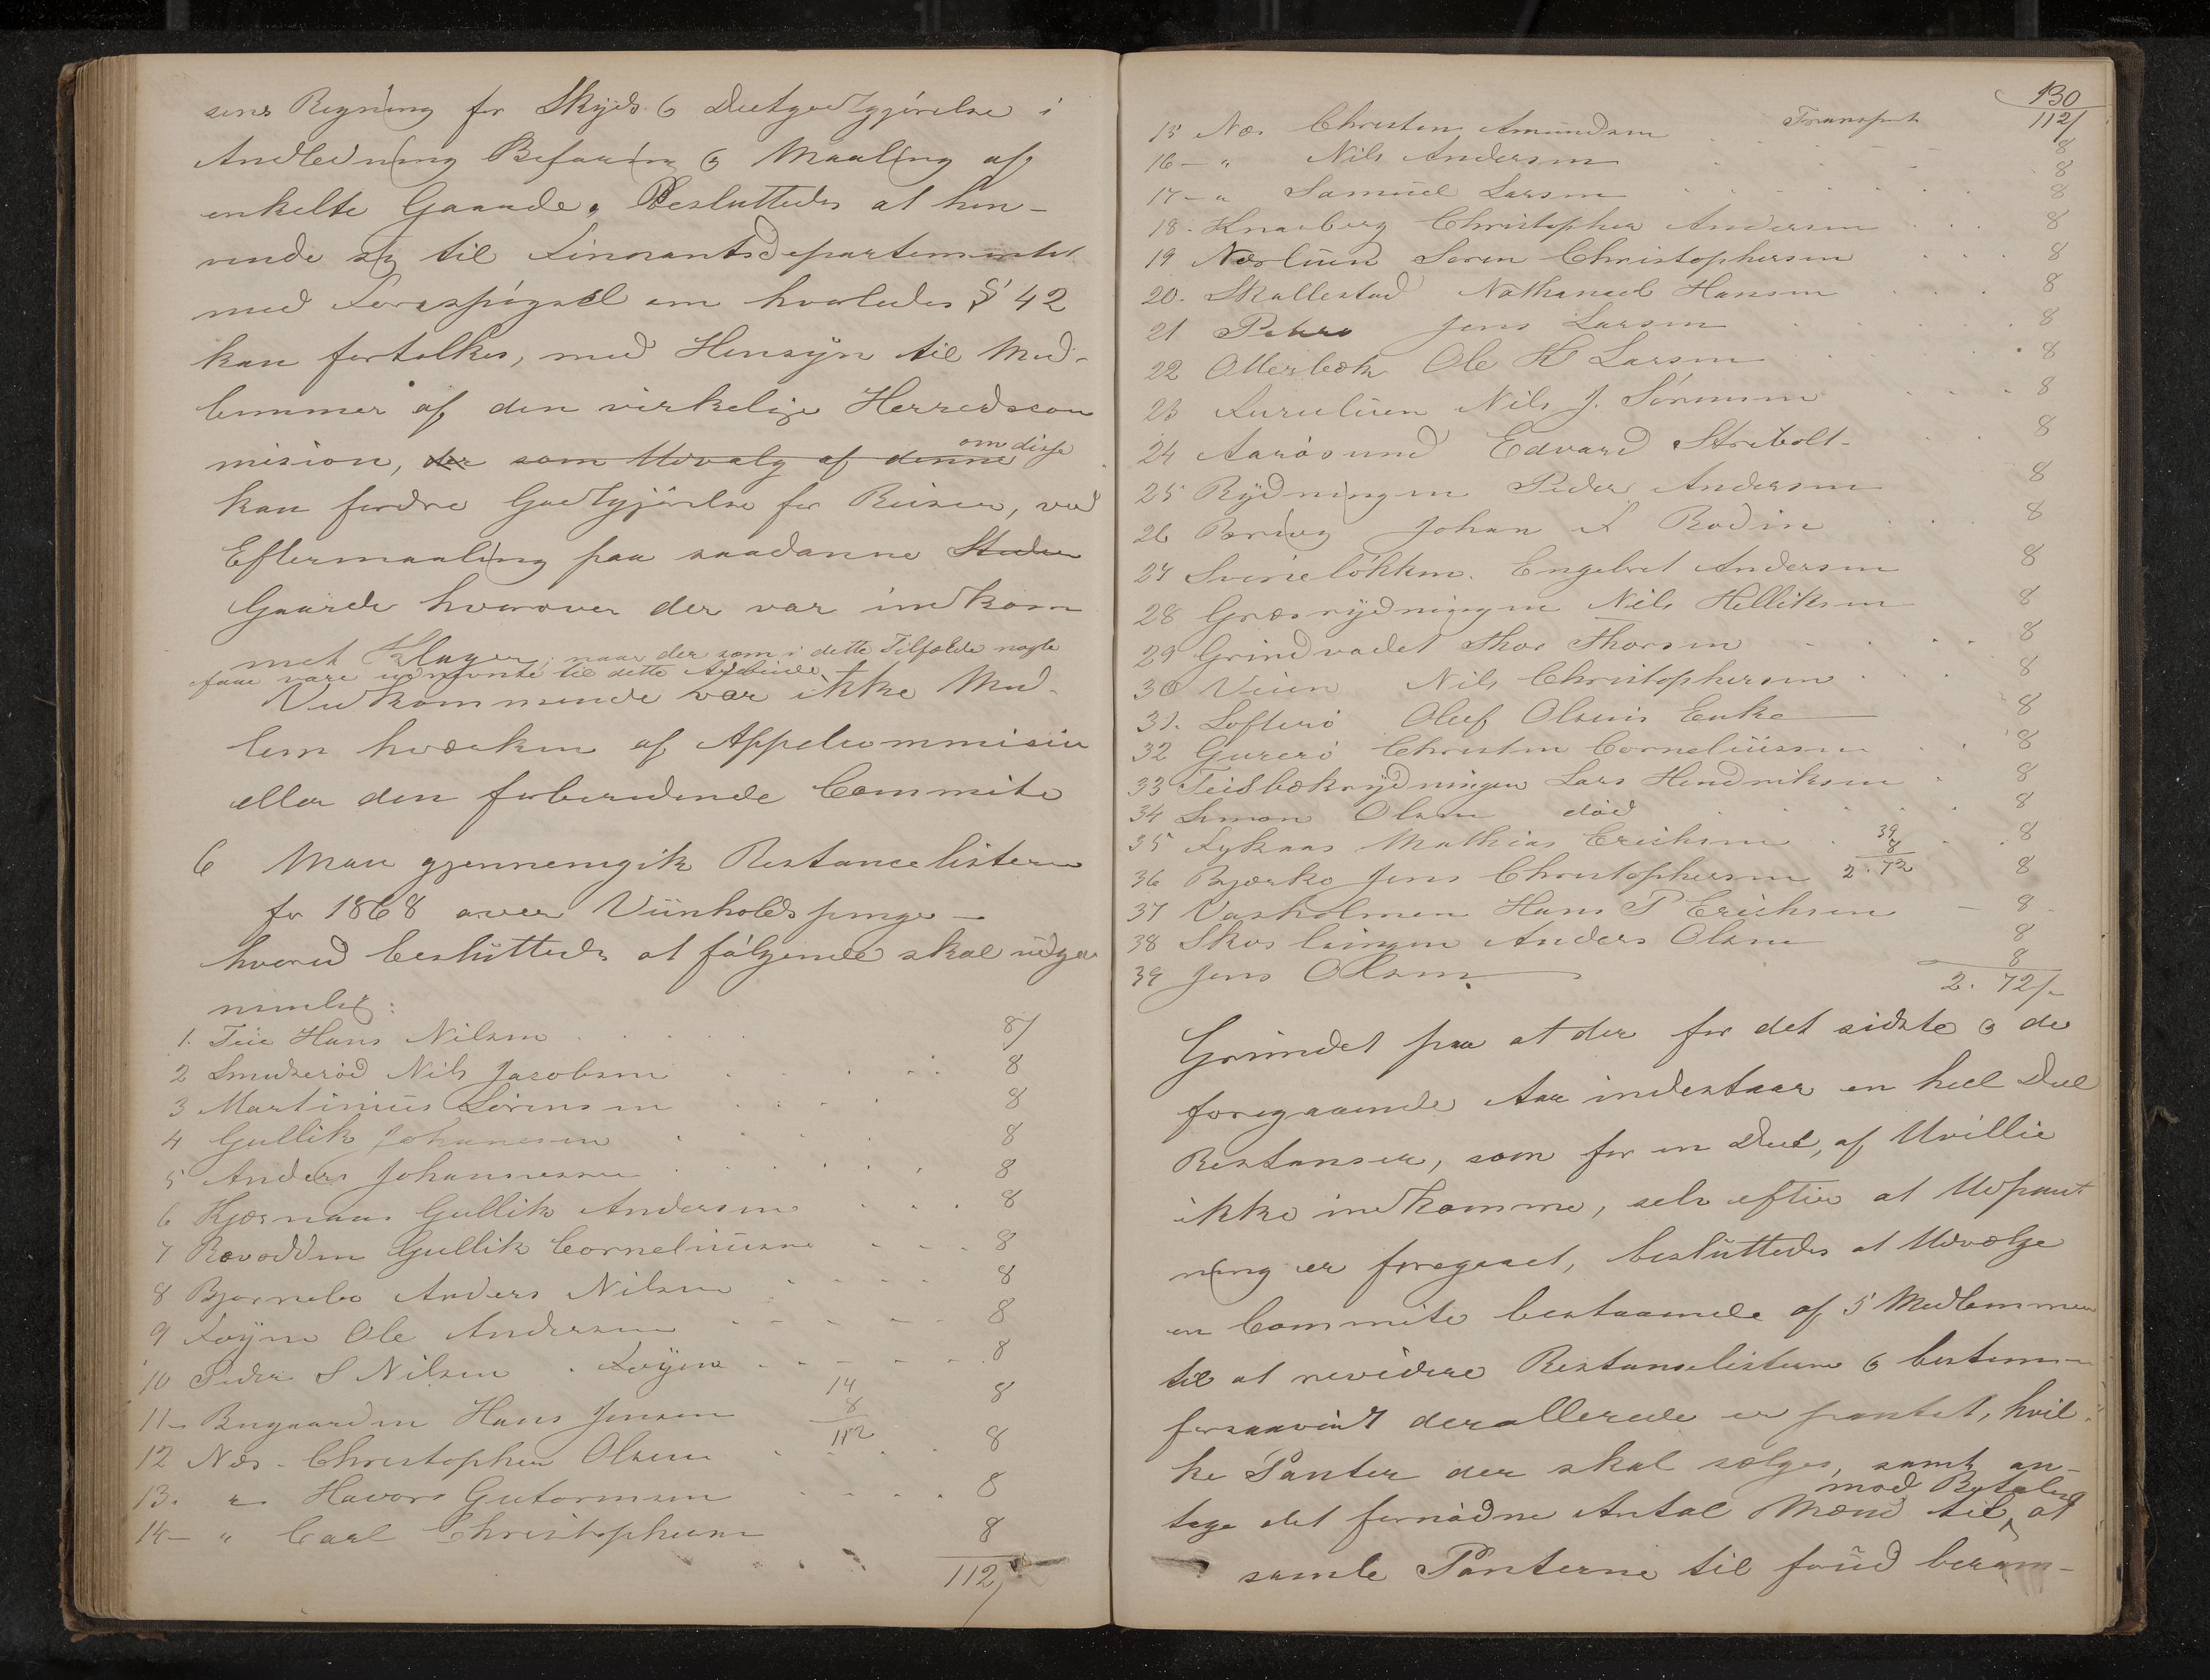 sens Regning for Skyds & Diætgodtgjörelse i
Anledning Befaring & Maaling af
enkelte Gaarde, Besluttedes at hen-
vende sig til Finnantsdepartementet
med Forespögsel om hvorledes § 42
kan fortolkes, med Hensyn til Med-
lemmer af den virkelige Herredscom
mision, der som Udvalg af denne om disse
kan fordre Godtgjörelse for Reiser, ved
Eftermaaling paa saadanne Steder
Gaarde hvorover der var indkom
met Klager, naar der som i dette Tilfælde nogle
faae vare udnævnte til dette Arbeide.
Vedkommende var ikke Med-
lem hværken af Appelcommision
eller den forberedende Commite
6 Man gjennemgik Restancelisten
for 1868 over Viinholdspenge -
hvorved besluttedes at fölgende skal udgaa
nemlig:
1. Teie Hans Nilsen 8/
2 Smidseröd Nils Jacobsen 8
3 Martinius Sörensen 8
4 Gullik Johanesen 8
5 Anders Johannesen 8
6 Kjærnaas Gullik Andersen 8
7 Rævodden Gullik Corneliussen 8
8 Bjørnebo Anders Nilsen 8
9 Föyne Ole Andersen 8
10 Peder S Nilsen . Föyne 8
11- Bugaarden Hans Jensen 14 8 112 8
12 Næs - Christopher Olsen 8
13. " Havor Gutormsen 8
14- " Carl Christophersen 8
112/
130
15 Næs Christen Amundsen Transport 112/
8
16 - " Nils Andersen 8
17 - " Samuel Larsen 8
18. Knarberg Christopher Andersen 8
19 Næsluen Soren Christophersen 8
20. Skallestad Nathanael Hansen 8
21 Jens Larsen 8
22 Ollerbæk Ole H Larsen 8
23 Furuluen Nils J. Sörensen 8
24 Aarösund Edvard Stribolt 8
25 Rydningen Peder Andersen 8
26 Johan F Bodin 8
27 Svinelökken. Engebret Andersen 8
28 Græsrydningen Nils Helliksen 8
29 Grindvadet Thor Thorsen 8
30 Veien Nils Christophersen 8
31. Lofterö Oluf Olsens Enke 8
32 Gurerö Christen Corneliussen 8
33 Teisbækrydningen Lars Hendriksen 8
34 Simon Olsen död 8
35 Fykaas Mathias Erichsen 39 8
36 Bjærkø Jens Christophersen 8 2.72 8
37 Vasholmen Hans P Erichsen - 8
38 Skoslaingen Anders Olsen 8
39 Jens Olsen 8
2. 72/-
Grundet paa at der for det sidste & de
foregaaende Aar indestaar en heel Deel
Restanser, som for en Deel, af Uvillie
ikke indkomme, selv efter at Udpant
ning er foregaaet, besluttedes at Udvælge
en Commite bestaaende af 5 Medlemmer
til at revidere Restanselisterne & bestem-
forsaavidt der allerede er pantet, hvil-
ke Panter der skal sælges, samt an-
tage det fornödne Antal Mænd til mod Betaling at
samle Panterne til foüd beram-